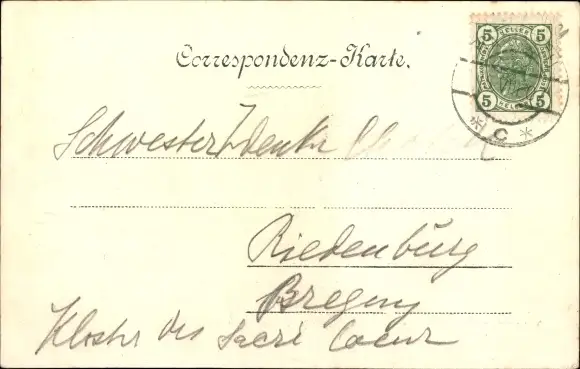 5 HELLER 5
5 HELLER 5
* C *
Correspondenz-Karte.
Schwester Zdenka
Riedenburg
Bregenz
Kloster des Sacré Coeur